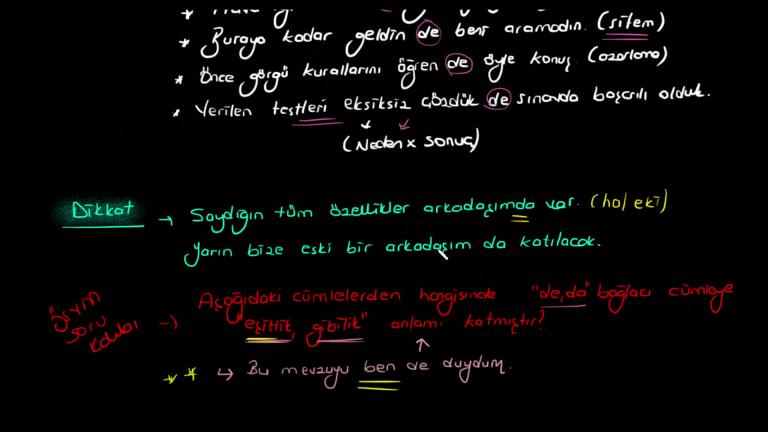 * Buraya kadar geldin de beni aramadın. (sitem)
* Önce görgü kurallarını öğren de öyle konuş. (azarlama)
* Verilen testleri eksiksiz çözdük de sınavda başarılı olduk.
(Neden x sonuç)
Dikkat → Saydığın tüm özellikler arkadaşımda var. (hal eki)
Yarın bize eski bir arkadaşım da katılacak.
Ösym soru kalıbı → Aşağıdaki cümlelerden hangisinde "de, da" bağlacı cümleye
"eşitlik, gibilik" anlamı katmıştır?
** ↳ Bu mevzuyu ben de duydum.